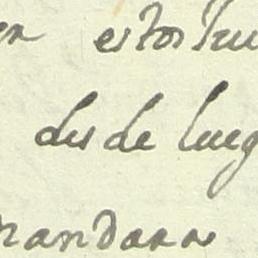 en estos lu
des de lueg
mandara